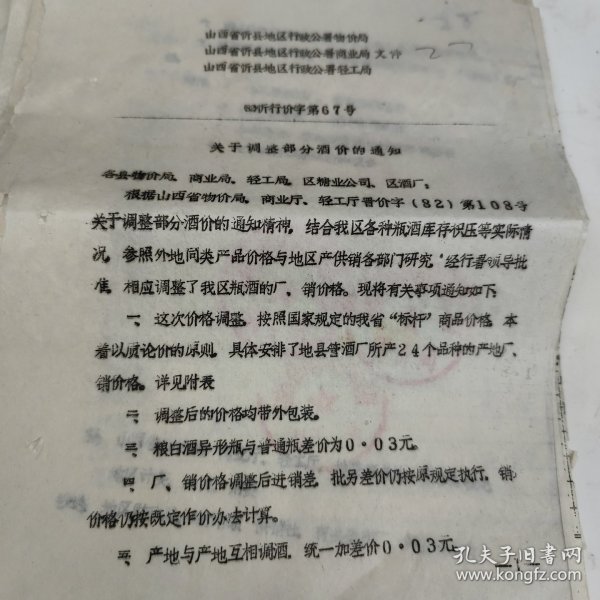 山西省忻县地区行政公署物价局
山西省忻县地区行政公署商业局 文件
山西省忻县地区行政公署轻工局
忻行价字第67号
关于调整部分酒价的通知
各县物价局、商业局、轻工局、区糖业公司、区酒厂:
根据山西省物价局、商业厅、轻工厅晋价字(82)第108号
关于调整部分酒价的通知精神,结合我区各种瓶酒库存积压等实际情
况,参照外地同类产品价格与地区产供销各部门研究,经行署领导批
准,相应调整了我区瓶酒的厂、销价格。现将有关事项通知如下:
一、这次价格调整,按照国家规定的我省“标杆”商品价格,本
着以质论价的原则,具体安排了地县营酒厂所产24个品种的产地厂、
销价格。详见附表
二、调整后的价格均带外包装。
三、粮白酒异形瓶与普通瓶差价为0·03元。
四、厂、销价格调整后进销差,批另差价仍按原规定执行,销
价格仍按既定作价办法计算。
五、产地与产地互相调酒,统一加差价0·03元。
—1—
孔夫子旧书网
www.kongfz.com